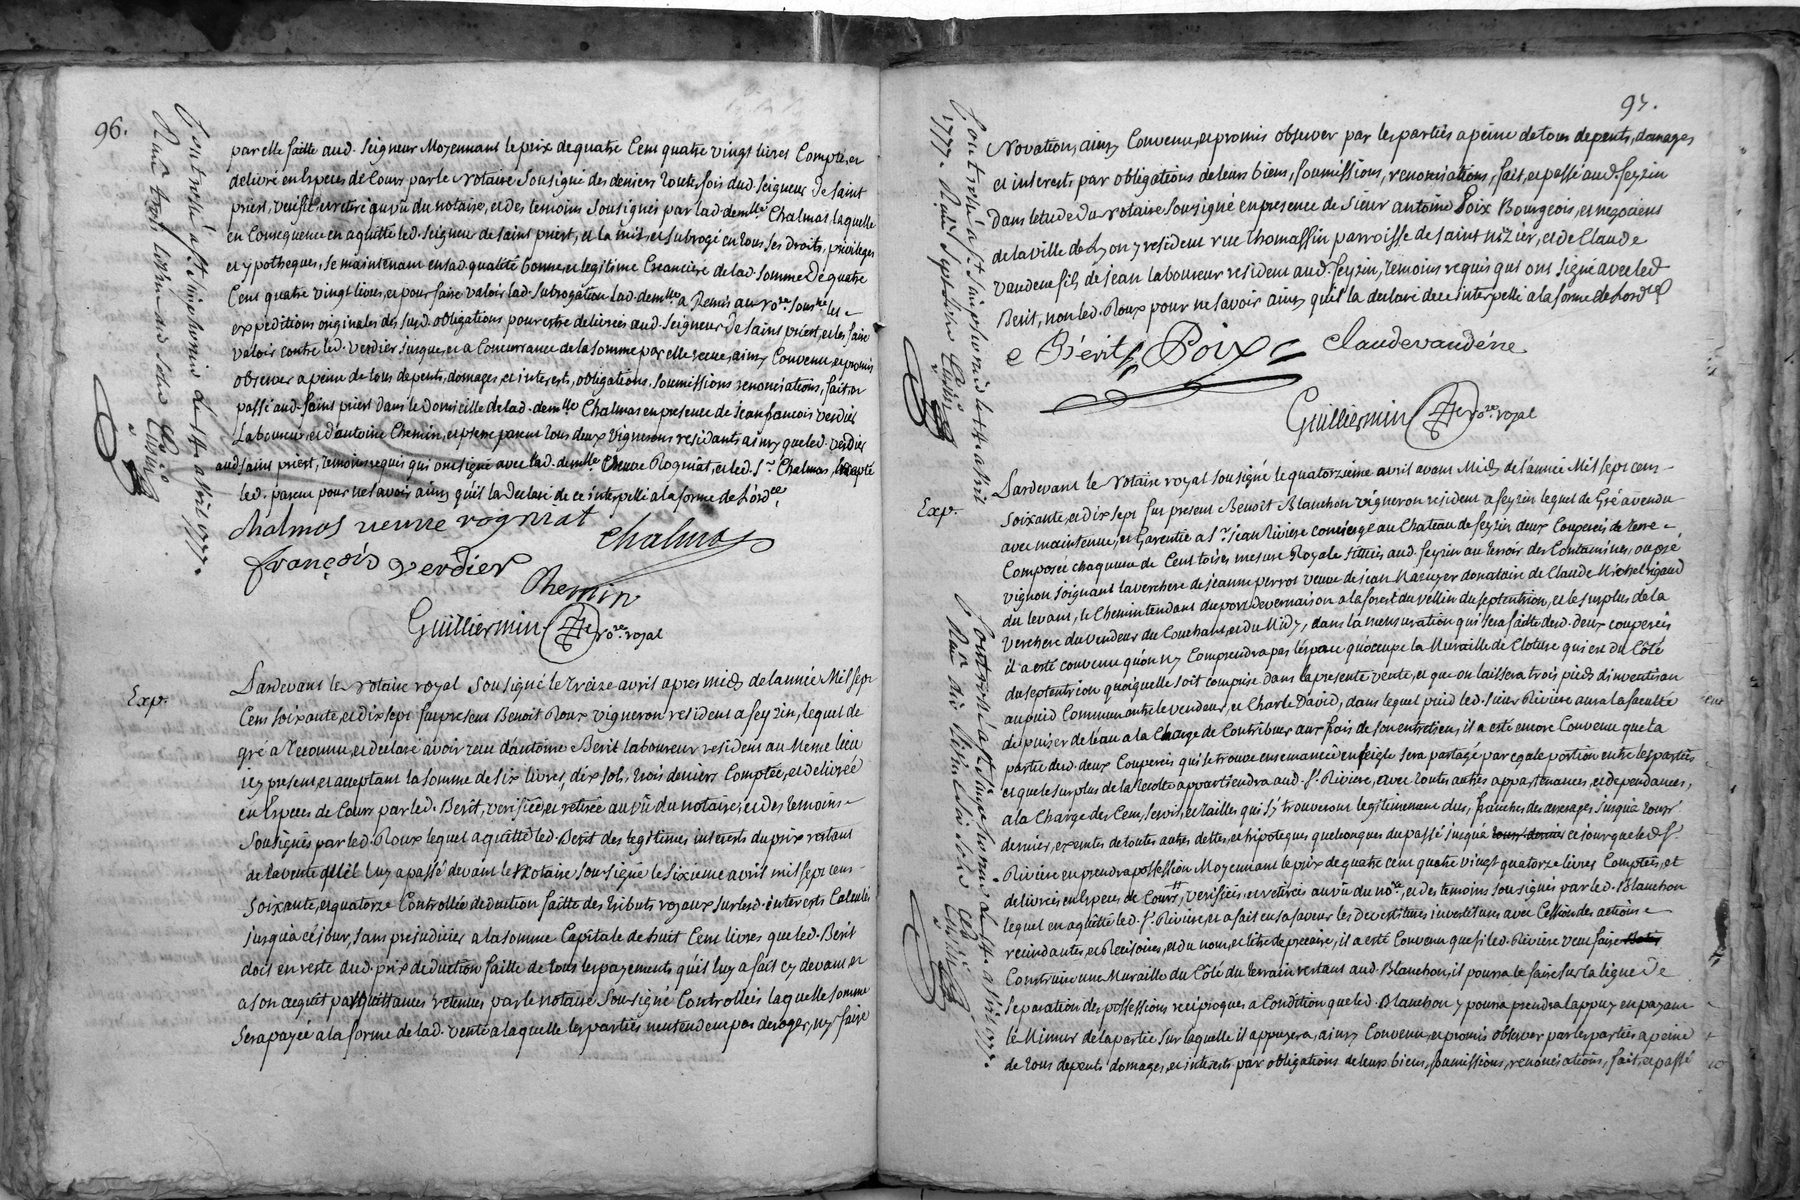 96.
par elle faitte aud. Seigneur Moyennant le prix de quatre Cent quatre vingt livres Comptée, et
delivré en Especes de Cours par le Notaire Sousigné des deniers toutefois dud. Seigneur de Saint
priest, verifié, et retiré au vû du notaire, et des temoins Sousignés par lad. demlle. Chalmas, laquelle
en Consequence en a quitté led. Seigneur de Saint priest, et la mis, et Subrogé en tous Ses droits, privileges
et ypotheques, Se maintenant en sad. qualité bonne, et legitime Creancière de lad. Somme De quatre
Cent quatre vingt livres, et pour faire valoir lad. Subrogation lad. demlle. a Remis au nore. Sousné. les
expeditions originales des susd. obligations pour estre delivrées aud. Seigneur De Saint priest, et les faire
valoir contre led. verdier jusques, et a Concurrance de la Somme par elle receue, ainsy Convenu, et promis
observer a peine de tous depents, domages, et interests, obligations, Soumissions, renonciations, fait, et
passé aud. Saint priest dans le Domicille de lad. demlle. Chalmas en presence de jean francois verdier
Laboureur, et d'antoine Chemin, et pierre parent tous deux vignerons residants ainsy que led. verdier
aud. Saint priest, temoins requis qui ont signé avec lad. demlle. Veuve Rogniat, et led. Sr. Chalmas, excepté
led. parent pour ne Savoir ainsy qu'il la Declaré de ce interpellé a la forme de L'ordce.
chalmas veuve rogniat
chalmas
françois verdier
Chemin
Guilliermin nore. royal
Controllé a St Simphorien d. le 14. avril 1777.
Exp.
Pardevant le Notaire royal Sousigné le Treize avril apres midy de lannée Mil Sept
Cent Soixante, et dix Sept fut present Benoit Roux vigneron resident a feyzin, lequel de
gré a Reconnu, et declaré avoir receu d'antoine Berit laboureur resident au Meme lieu
icy present, et acceptant la Somme de Six livres, dix Sols, trois deniers Comptée, et delivrée
en Especes de Cours par led. Berit, verifiée, et retirée au vû du notaire, et des temoins
Sousignés par led. Roux lequel a quitté led. Berit des legitimes interests du prix restant
de la vente qu'il luy a passé devant le Notaire Sousigné le Sixieme avril mil Sept cent
Soixante, et quatorze Controllée deduction faitte des tributs royaux sur lesd. interests Calculés
jusqu'a ce jour, Sans prejudicier a la Somme Capitale de huit Cent livres que led. Berit
doit en reste dud. prix deduction faitte de tous les payements qu'il luy a fait cy devant, et
a Son acquit par quittances retenues par le notaire Sousigné Controllées laquelle Somme
Sera payée a la forme de lad. vente a laquelle les parties n'entendent pas deroger, ny faire
97.
Novation, ainsy Convenu, et promis observer par les parties a peine de tous depents, domages
et interests par obligations de leurs biens, Soumissions, renonciations, fait, et passé aud. feyzin
Dans letude du Notaire Sousigné en presence de Sieur antoine Poix Bourgeois, et negociant
de la ville de Lyon y resident rue thomassin parroisse de Saint Nizier, et de Claude
Vandene fils de jean laboureur resident aud. feyzin, temoins requis qui ont signé avec led.
Berit, non led. Roux pour ne Savoir ainsy qu'il la declaré de ce interpellé a la forme de Lordce.
Bérit
Poix
claude vandéne
Guilliermin nore. royal
Controllé a St Simphorien d. le 14 avril
1777.
Exp.
Pardevant le Notaire royal Sousigné le quatorzieme avril avant Midy de l'année Mil Sept cent
Soixante, et dix Sept fut present Benoit Blanchon vigneron resident a feyzin lequel de Gré a vendu
avec maintenue, et Garentie a Sr. jean Riviere concierge au Chateau de feyzin deux Couperées de terre
Composée chaqueune de Cent toises mesure Royale Situées aud. feyzin au terroir des Contamines, ou pré
vignon joignant la verchere de jeanne perrot veuve de jean Mazuyer donataire de Claude Michel rigaud
du levant, le Chemin tendant du port de vernaison a la forest du vellin du Septentrion, et le Surplus de la
verchere du vendeur du Couchant, et du Midy, dans la mensuration qui Sera faitte desd. deux couperées
il a esté convenu qu'on n'y Comprendra pas l'espace qu'occupe la Muraille de Cloture qui est du Côté
du Septentrion quoiquelle Soit comprise dans la presente vente, et que on laissera trois pieds
au puid Commun entre le vendeur, et Charle David, dans lequel puid led. Sieur Rivière aura la faculté
de puiser de l'eau a la Charge de Contribuer aux frais de Son entretien, il a esté encore Convenu que la
partie desd. deux Couperées qui Se trouve ensemancée en Seigle sera partagé par egale portion entre les parties
et que le Surplus de la Recolte appartiendra aud. Sr. Riviere, avec toutes autres appartenances, et dependances,
a la Charge des Cens, Servis, et tailles qui S'y trouveront legitimement dus, franches des arrerages jusqu'a tout
dernier, exemtes de toutes autres dettes, et hipoteques quelconques du passé jusqu'a ce jour que led. Sr.
Rivière en prendra possession Moyennant le prix de quatre cent quatre vingt quatorze livres Comptées, et
delivrées en Especes de Cours, verifiées, et retirées au vû du nore., et des temoins Sousignés par led. Blanchon
lequel en a quitté led. Sr. Riviere, et a fait en Sa faveur les Devestitures investitures avec Cession des actions
rescindantes, et Rescisoires, et du nom, et titre de precaire, il a esté Convenu que Si led. Riviere veut faire
Construire une Muraille du Côté du terrain restant aud. Blanchon, il pourra le faire Sur la ligne De
Separation des possessions reciproques a Condition que led. Blanchon y pourra prendre l'appuy en payant
le Mimur de la partie Sur laquelle il appuyera, ainsy Convenu, et promis observer par les parties a peine
de tous depents domages, et interests par obligations de leurs biens, Soumissions, renonciations, fait, et passé